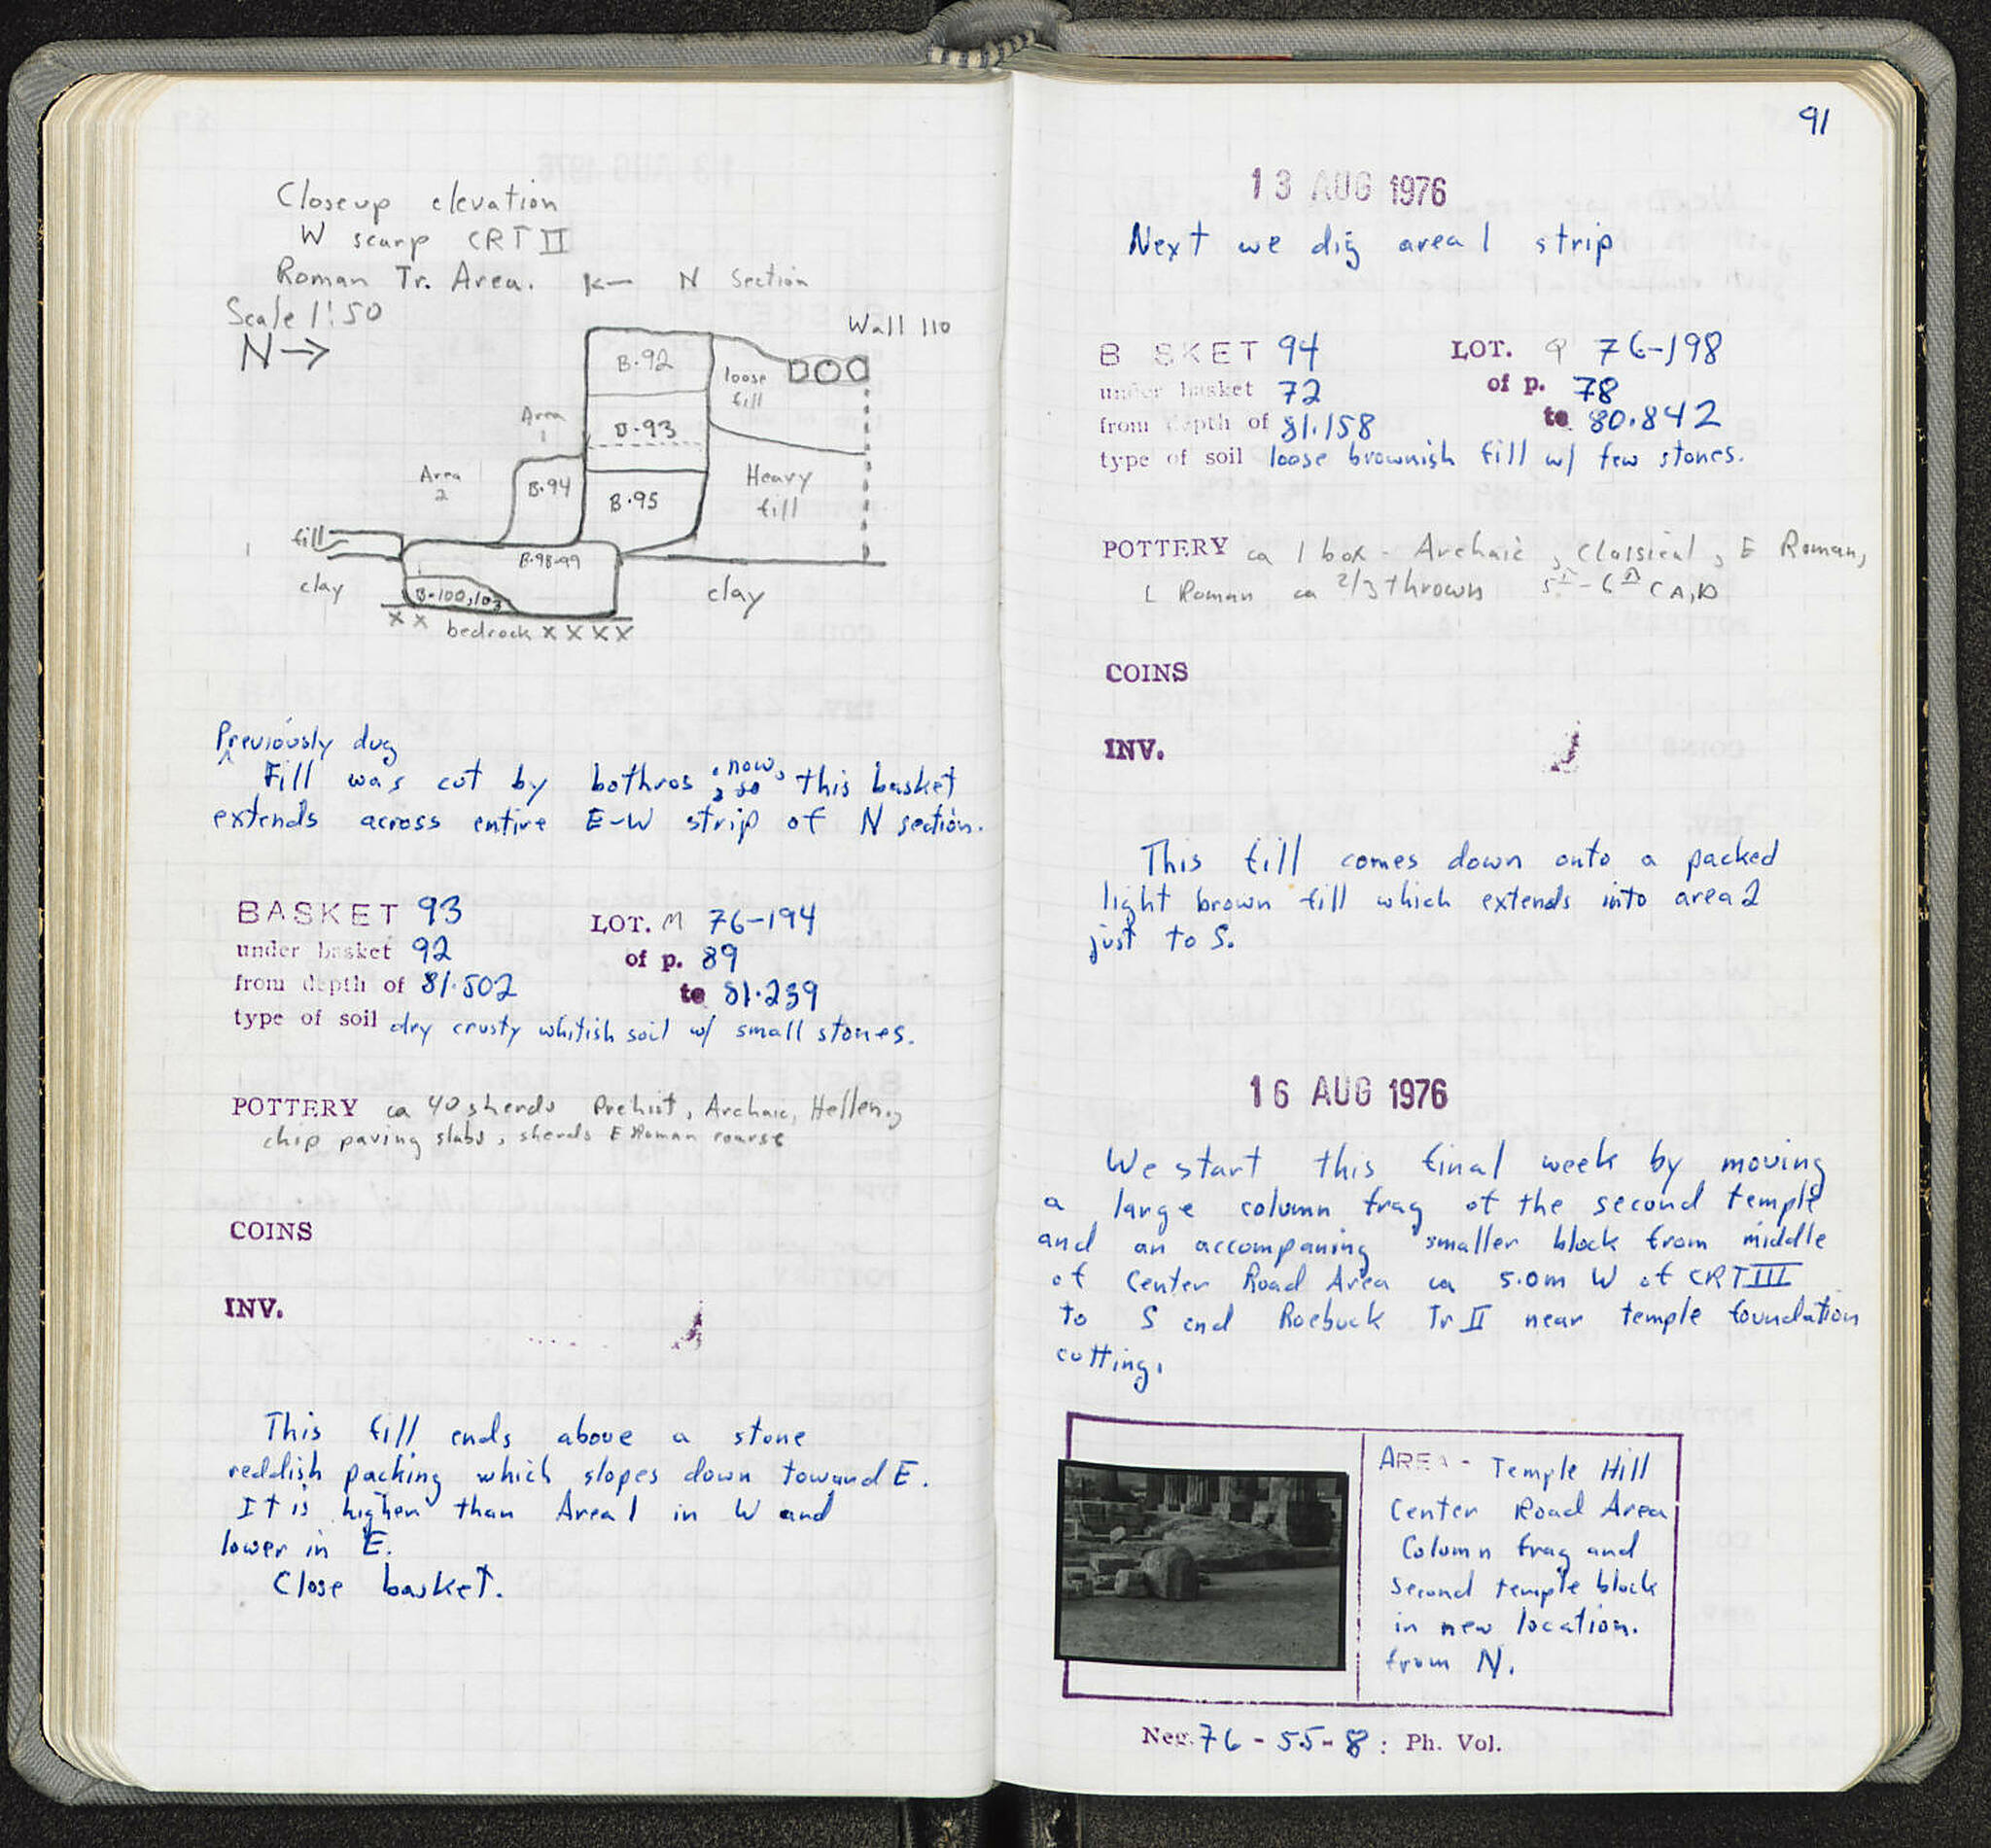 Closeup elevation
W scarp CRT II
Roman Tr. Area. ← N Section
Scale 1:50
N→
Wall 110
B·92
loose
fill
Area
1
B·93
Area
2
B·94
B·95
Heavy
fill
fill
B·98-99
clay
B·100,103
clay
x x bedrock x x x x
Previously dug
Fill was cut by bothros ; now, so this basket
extends across entire E-W strip of N section.
BASKET 93 LOT. M 76-194
under basket 92 of p. 89
from depth of 81.502 to 81.239
type of soil dry crusty whitish soil w/ small stones.
POTTERY ca 40 sherds Prehist, Archaic, Hellen,
chip paving slabs, sherds E Roman coarse
COINS
INV.
This fill ends above a stone
reddish packing which slopes down toward E.
It is higher than Area 1 in W and
lower in E.
Close basket.
91
13 AUG 1976
Next we dig area 1 strip
B SKET 94 LOT. 9 76-198
under basket 72 of p. 78
from depth of 81.158 to 80.842
type of soil loose brownish fill w/ few stones.
POTTERY ca 1 box - Archaic, Classical, E Roman,
L Roman ca 2/3 thrown 5th-6th C A.D
COINS
INV.
This fill comes down onto a packed
light brown fill which extends into area 2
just to S.
16 AUG 1976
We start this final week by moving
a large column frag of the second temple
and an accompaning smaller block from middle
of Center Road Area ca 5.0m W of CRT III
to S end Roebuck Tr II near temple foundation
cutting.
AREA - Temple Hill
Center Road Area
Column frag and
second temple block
in new location.
from N.
Neg. 76-55-8: Ph. Vol.